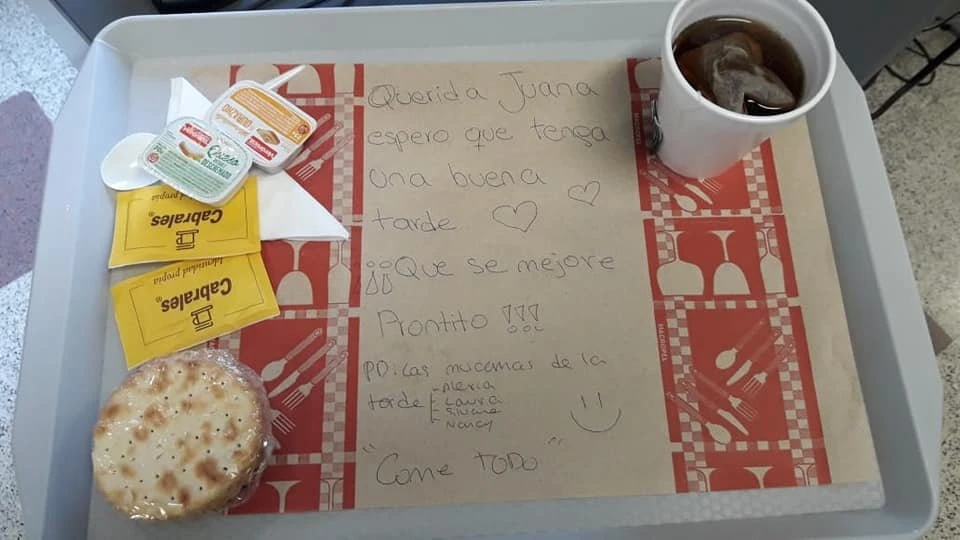 Querida Juana
espero que tenga
una buena
tarde
¡¡Que se mejore
Prontito !!!
PD: Las mucamas de la
tarde
- Alexia
- Laura
- Silvana
Nancy
"Come TODO"
DURAZNO
Cabrales®
Identidad propia
Cabrales®
Identidad propia
MACROPEL
MACROPEL